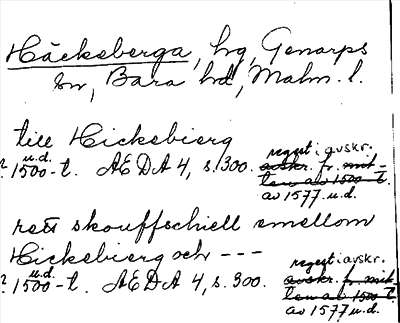 Häcksberga, hg, Genarps
sn, Bara hd, Malm. l.
till Hicksbierg
regest i avskr.
u.d.
? 1500-t. AEDA 4, s. 300. avskr. fr. mit-
ten av 1500-t.
av 1577 u.d.
rett skouffschiell emellom
Hicksbierg och ---
regest i avskr.
u.d.
? 1500-t. AEDA 4, s. 300. avskr. fr. mit-
ten av 1500-t.
av 1577 u.d.